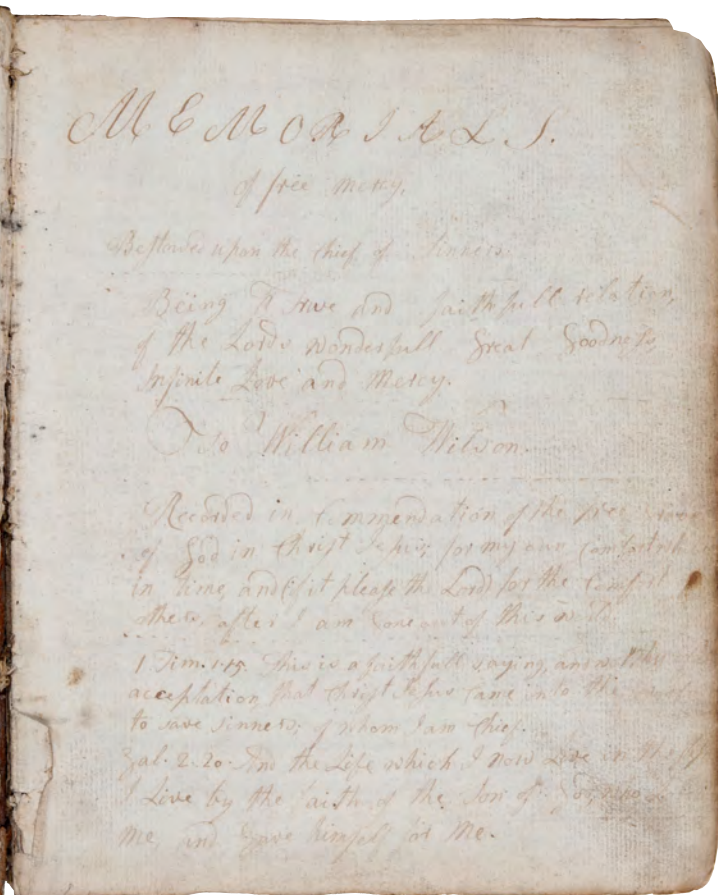 MEMORIALS.
of free mercy.
Bestowed upon the Chief of Sinners.
Being A True and faithfull relation,
of the Lords wonderfull Great Goodness,
Infinite Love and Mercy.
To William Wilson.
Recorded in Commendation of the free
of God in Christ Jesus; for my own Comfort
in time, and (if it please the Lord) for the Comfort
others, after I am Gone out of this world.
1 Tim. 1.15. This is a faithfull saying, and
acceptation that Christ Jesus Came into the
to save sinners; of whom I am Chief.
Gal. 2.20. And the Life which I now Live in the
I Live by the faith of the Son of God, who
me, and Gave himself for Me.